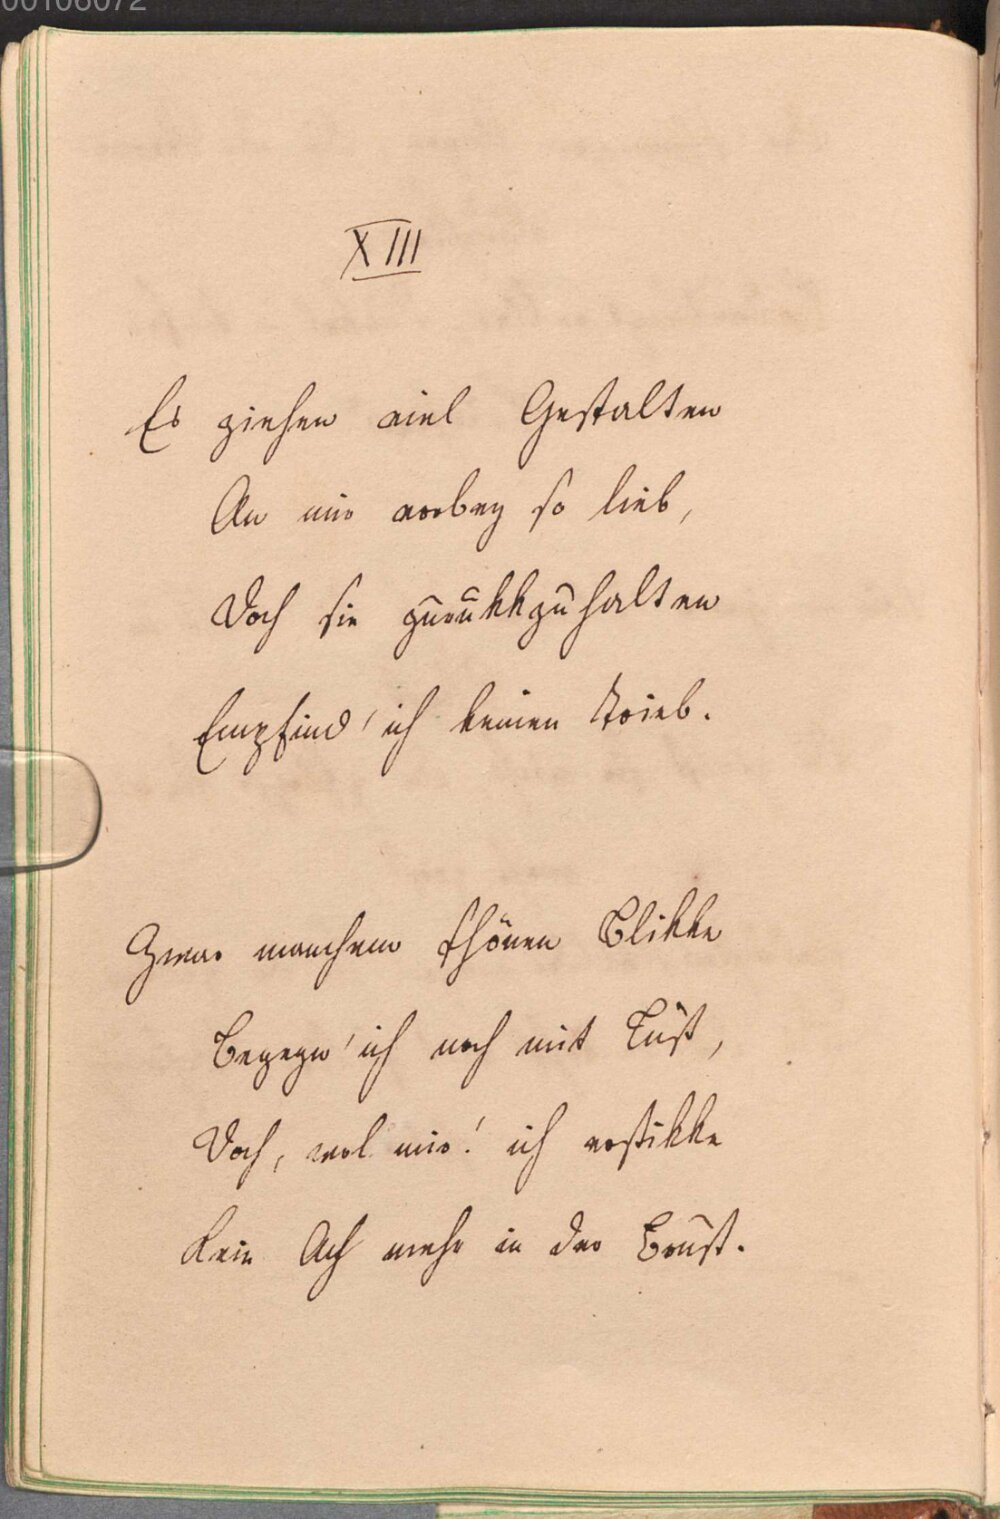 00106072
XIII
Es ziehen viel Gestalten
An mir vorbey so lieb,
Doch sie zurükkzuhalten
Empfind' ich keinen Trieb.
Zwar manchem schönen Blikke
Begegn' ich noch mit Lust,
Doch, wol mir! ich erstikke
Kein Ach mehr in der Brust.